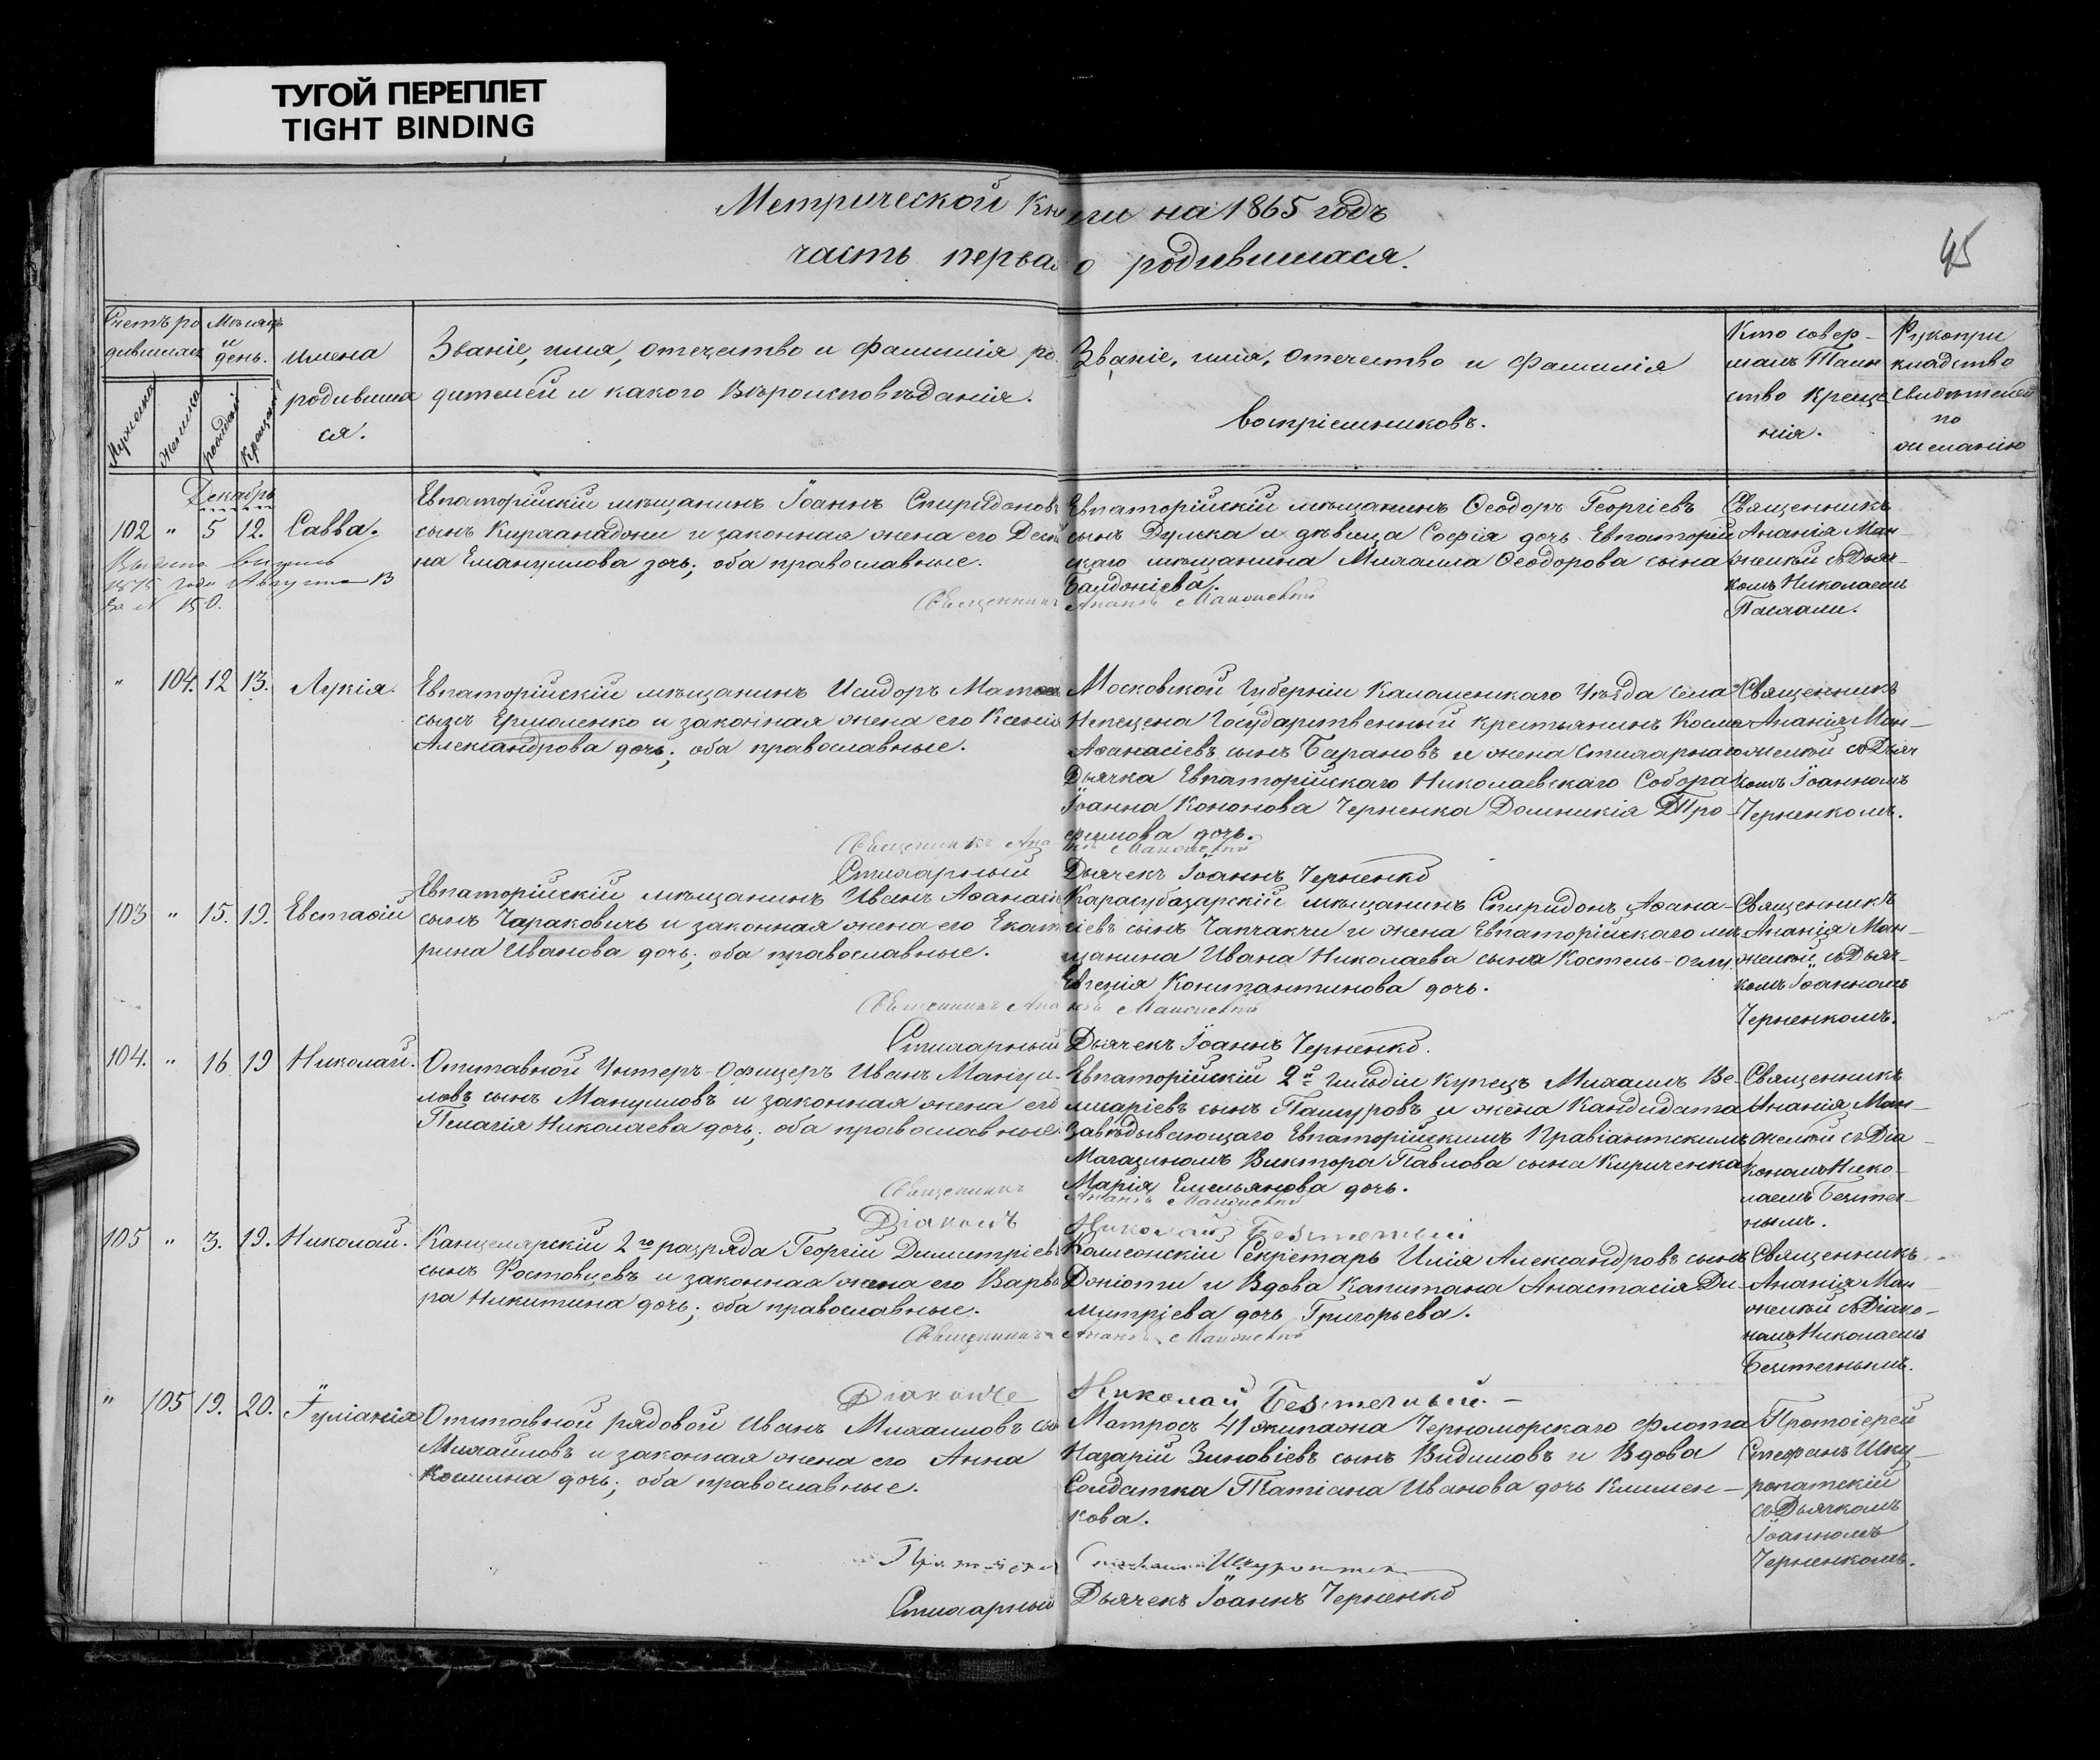 ТУГОЙ ПЕРЕПЛЕТ
TIGHT BINDING
Метрической книги на 1865 годъ
часть первая о родившихся.
45
Счетъ родившихся
Мужеска
Женска
Мѣсяцъ и день.
рожденія
Крещенія
Имена родившихся.
Званіе, имя, отечество и фамилія родителей и какого Вѣроисповѣданія.
Званіе, имя, отечество и фамилія воспріемниковъ.
Кто совершалъ Таинство Крещенія.
Рукоприкладство свидѣтелей по желанію
Декабрь
102 " 5 12. Савва.
Евпаторійскій мѣщанинъ Іоаннъ Спиридоновъ
сынъ и законная жена его
на Емануилова дочь; оба православные.
Евпаторійскій мѣщанинъ Ѳеодоръ Георгіевъ
сынъ Думжа и дѣвица Софія дочь Евпаторій
скаго мѣщанина Михаила Ѳеодорова сына
Балдоніева.
Священникъ
Ананія Ман-
желѣй съ Дьяч-
комъ Николаемъ
Пасхали.
1875 года Августа 13
за № 150.
Священникъ Ананія
" 104. 12 13. Лукія.
Евпаторійскій мѣщанинъ Исидоръ
сынъ Ермоленко и законная жена его Ксенія
Александрова дочь; оба православные.
Московской Губерніи Каломенскаго Уѣзда села
Непецена Государственный крестьянинъ Косма
Аѳанасіевъ сынъ Барановъ и жена Стихарнаго
Дьячка Евпаторійскаго Николаевскаго Собора
Іоанна Кононова Черненка Домникія Тро-
фимова дочь.
Священникъ
Ананія Ман-
желѣй съ Дьяч
комъ Іоанномъ
Черненкомъ.
Священникъ Ананія
Стихарный Дьячекъ Іоаннъ Черненко
103 " 15. 19. Евстафій
Евпаторійскій мѣщанинъ Иванъ Аѳанасіевъ
сынъ Чараковичъ и законная жена его Екате
рина Иванова дочь; оба православные.
Карасубазарскій мѣщанинъ Спиридонъ Аѳана-
сіевъ сынъ Чапчакчи и жена Евпаторійскаго мѣ-
щанина Ивана Николаева сына Костель-оглу
Евгенія Константинова дочь.
Священникъ
Ананія Ман-
желѣй съ Дьяч-
комъ Іоанномъ
Черненкомъ.
Священникъ Ананія
Стихарный Дьячекъ Іоаннъ Черненко.
104. " 16 19 Николай.
Отставной Унтеръ-Офицеръ Иванъ Мануи-
ловъ сынъ Мануиловъ и законная жена его
Пелагія Николаева дочь; оба православные.
Евпаторійскій 2й Гильдіи Купецъ Михаилъ Ве-
лисаріевъ сынъ Пашуровъ и жена Кандидата
Завѣдывающаго Евпаторійскимъ Правіантскимъ
Магазиномъ Виктора Павлова сына Кириченка
Марія Емельянова дочь.
Священникъ
Ананія Ман-
желѣй съ Діа-
кономъ Нико-
лаемъ Безтеч-
нымъ.
Священникъ Ананія
Діаконъ Николай Безтечный
105 " 3. 19. Николай.
Канцелярскій 2го разряда Георгій Димитріевъ
сынъ Ростовцевъ и законная жена его Варва
ра Никитина дочь; оба православные.
Колежскій Секретарь Илія Александровъ сынъ
Доніоти и Вдова Капитана Анастасія Ди-
митріева дочь Григорьева.
Священникъ
Ананія Ман-
желѣй съ Діако-
номъ Николаемъ
Безтечнымъ.
Священникъ Ананія
Діаконъ Николай Безтечный.
" 105 19. 20. Іуліанія
Отставной рядовой Иванъ Михаиловъ сы
Михайловъ и законная жена его Анна
Космина дочь; оба православные.
Матросъ 41 экипажа Черноморскаго Флота
Назарій Зиновіевъ сынъ Видимовъ и Вдова
Солдатка Татіана Иванова дочь Климен-
кова.
Протоіерей
Стефанъ Шку-
ропатскій
съ Дьячкомъ
Іоанномъ
Черненкомъ.
Протоіерей
Стихарный Дьячекъ Іоаннъ Черненко